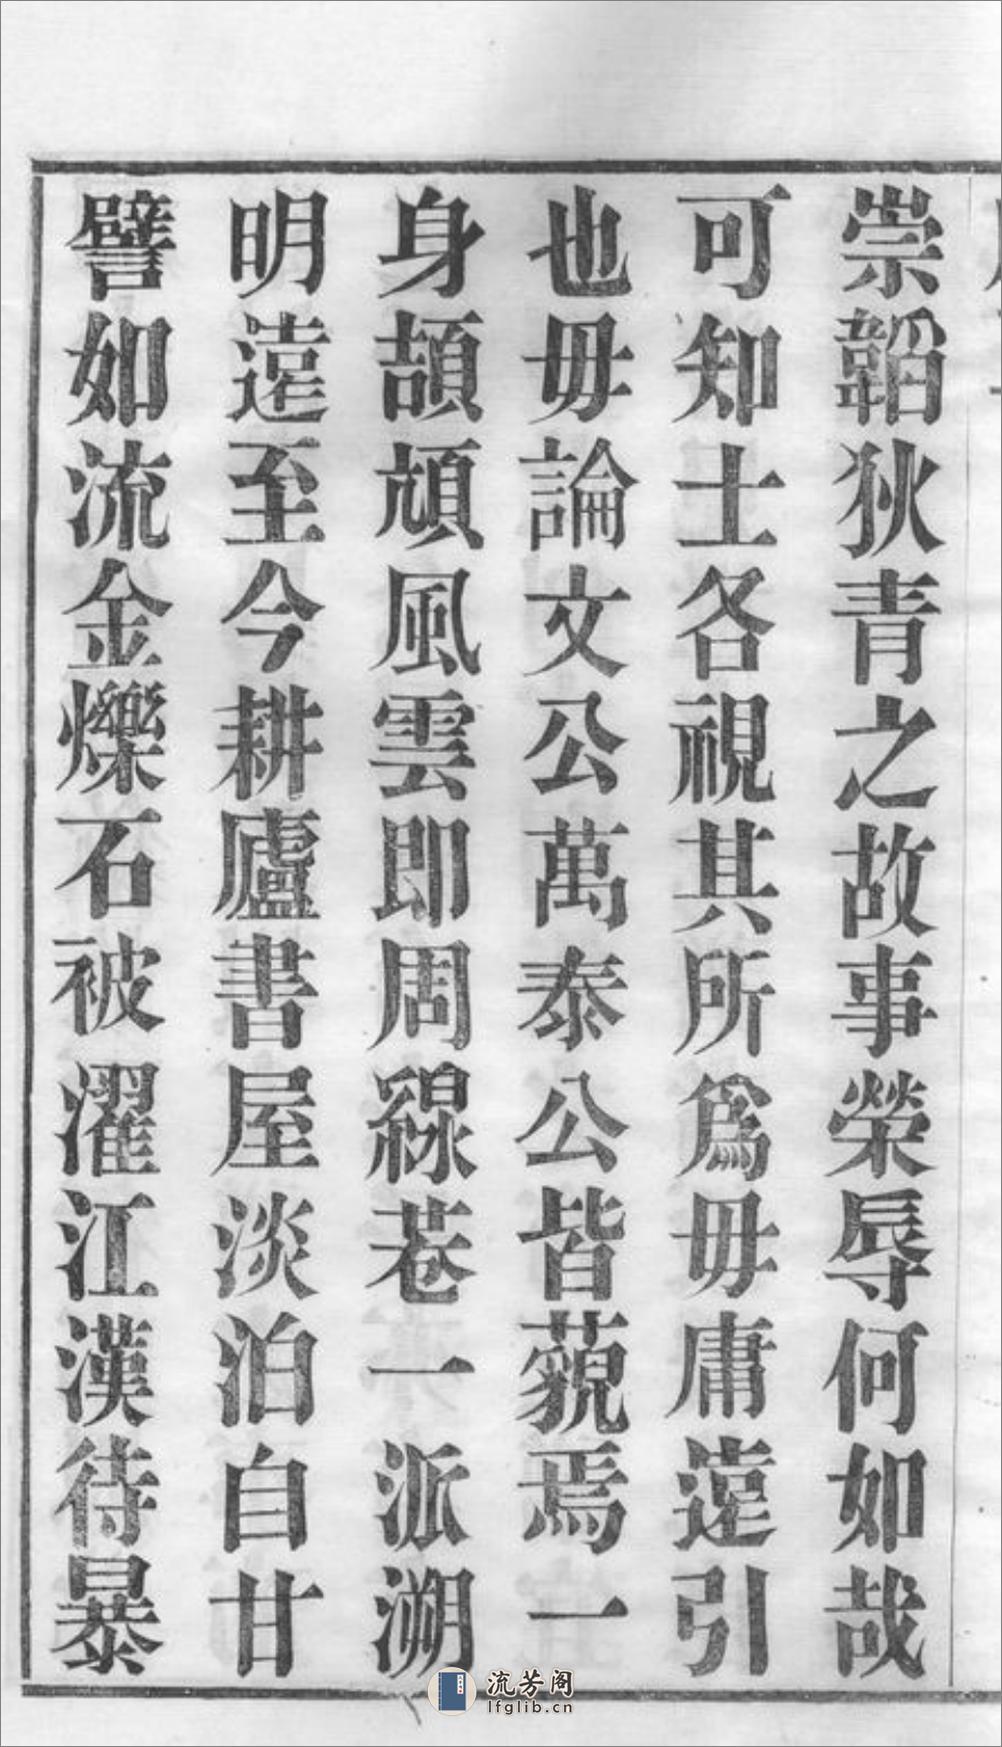 崇韜狄青之故事榮辱何如哉
可知士各視其所爲毋庸遠引
也毋論文公萬泰公皆藐焉一
身頡頏風雲即周線巷一派溯
明遠至今耕廬書屋淡泊自甘
譬如流金爍石被濯江漢待暴
流芳阁
lfglib.cn